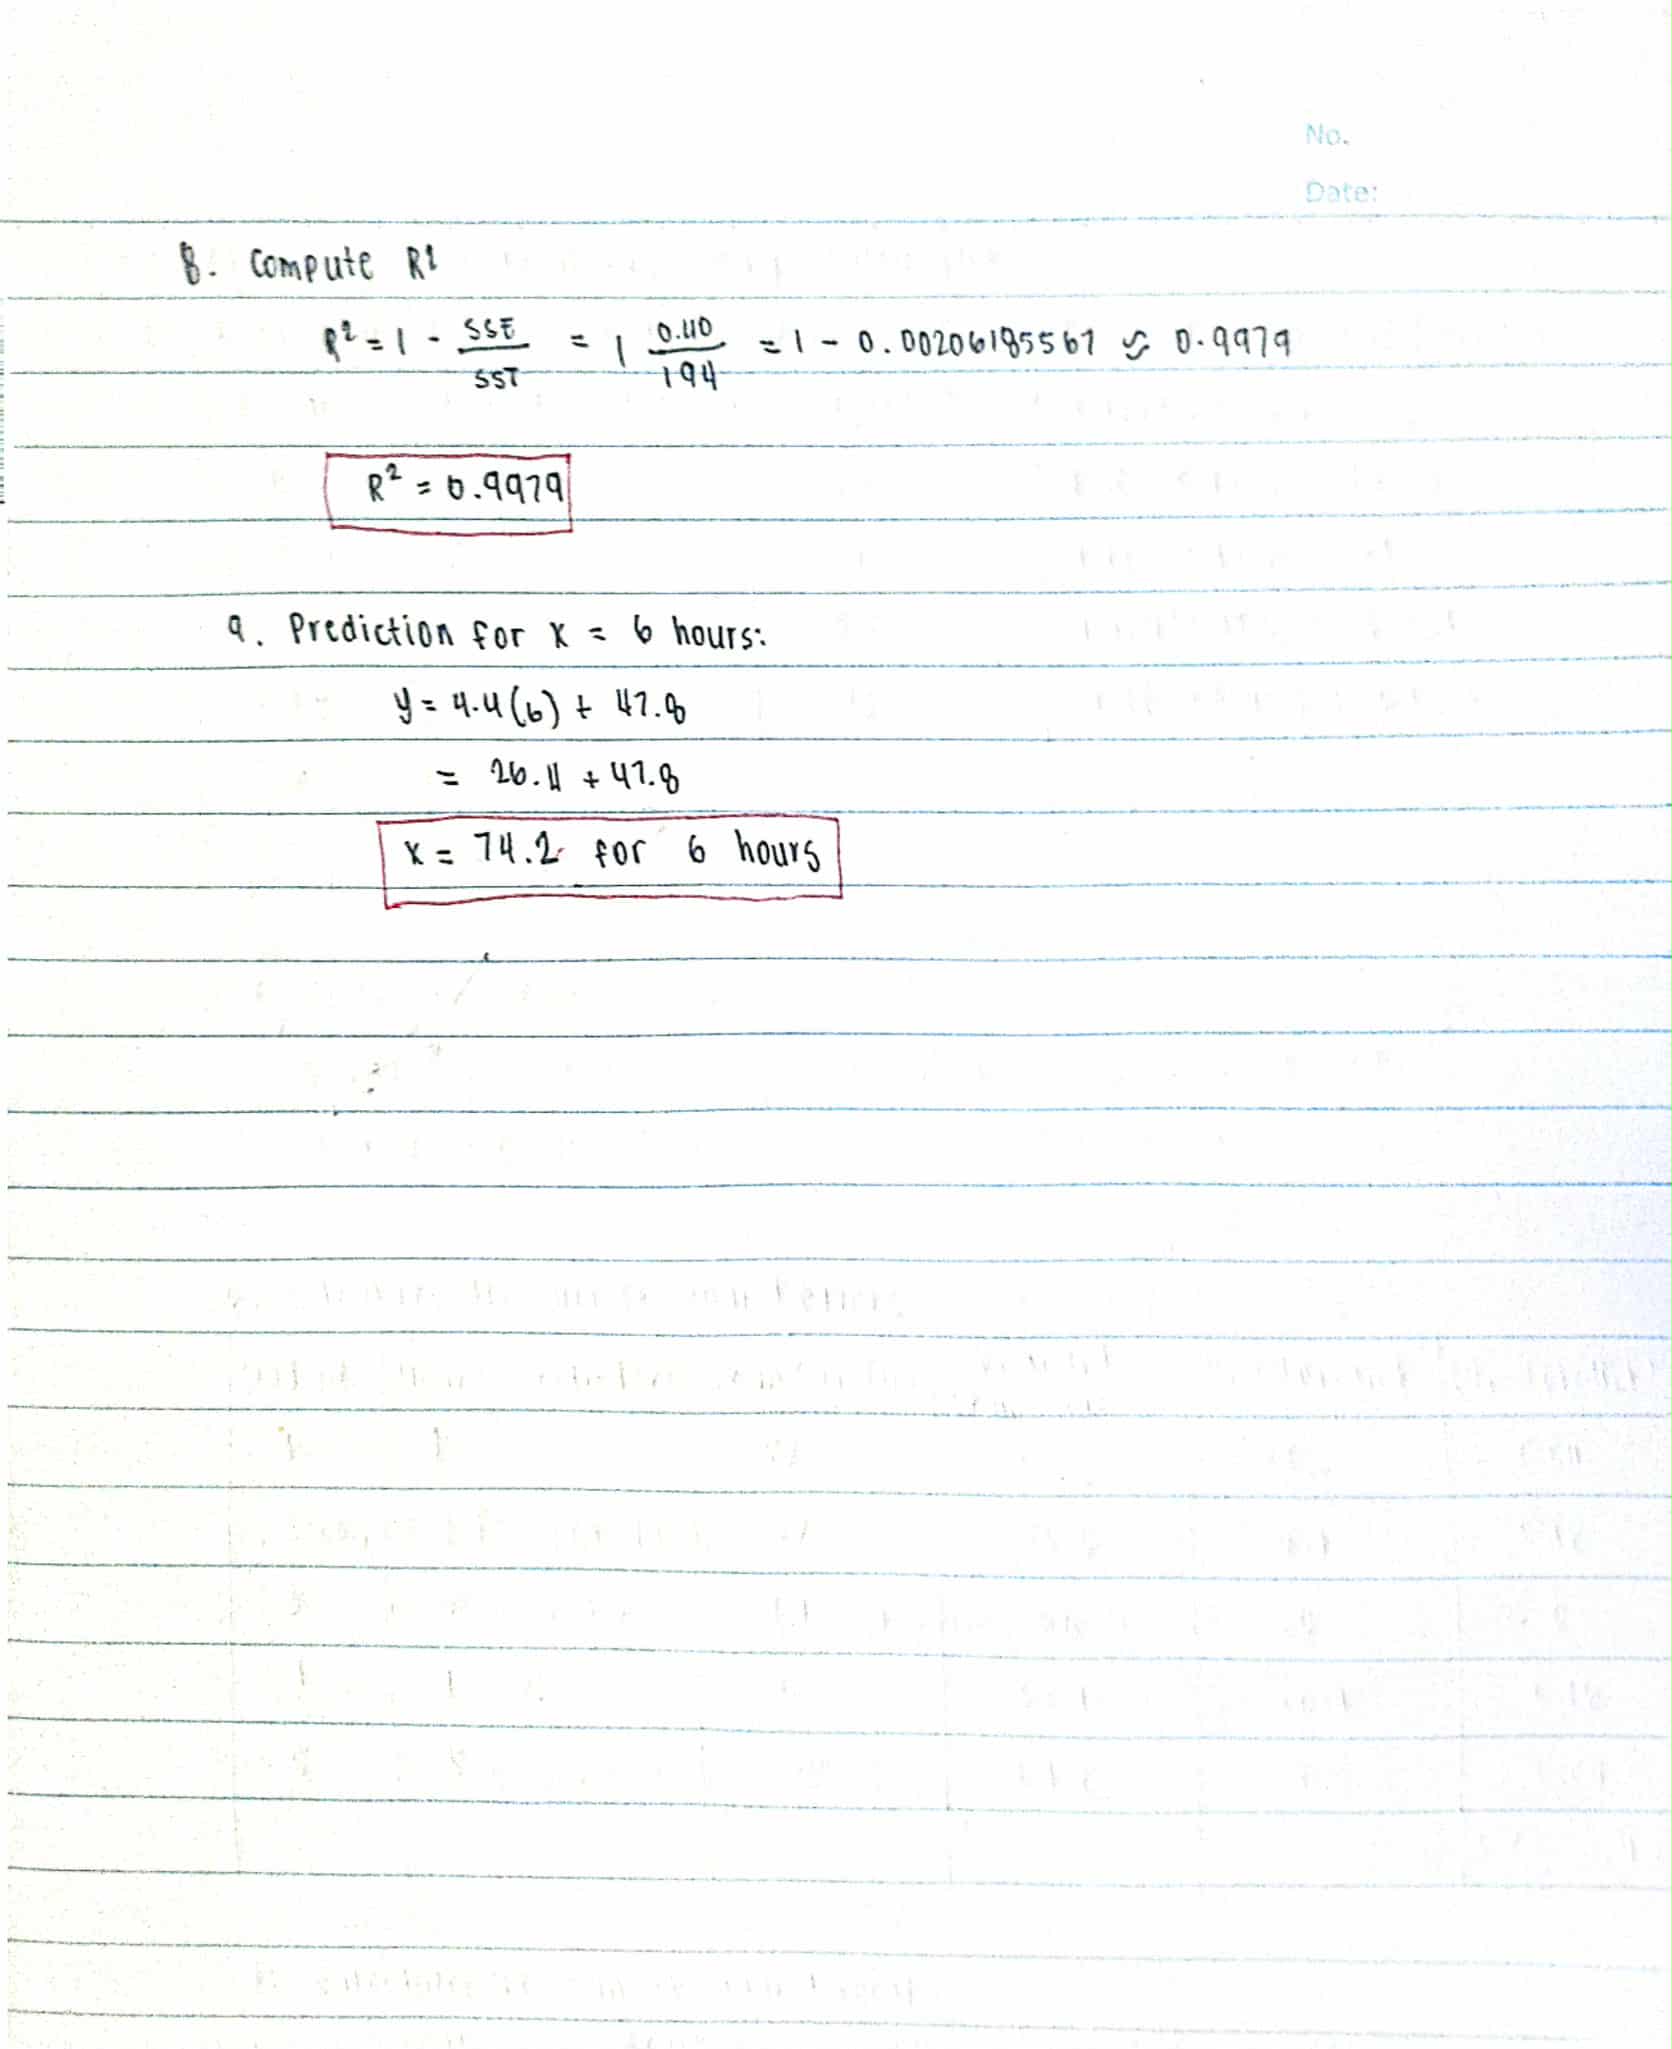 No.
Date:
8. Compute R²
R² = 1 - SSE/SST = 1 0.40/194 = 1 - 0.00206185567 ≈ 0.9979
R² = 0.9979
9. Prediction for x = 6 hours:
y = 4.4(6) + 47.8
= 26.4 + 47.8
x = 74.2 for 6 hours